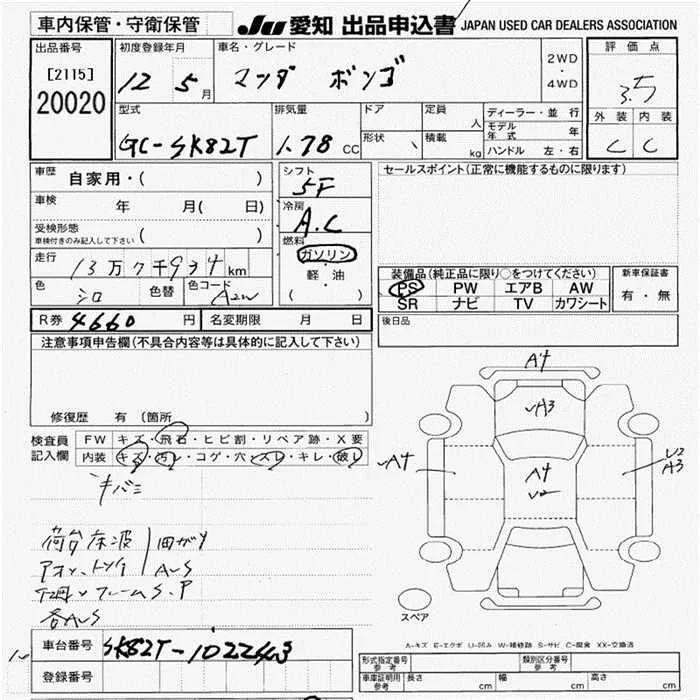 車内保管・守衛保管
JU 愛知 出品申込書 JAPAN USED CAR DEALERS ASSOCIATION
出品番号
[2115]
20020
初度登録年月
12 5月
車名・グレード
マツダ ボンゴ
2WD
・
4WD
評価点
3.5
外装 内装
C C
型式
GC-SK82T
排気量
1.78 CC
ドア
形状
定員
人
積載
kg
ディーラー・並行
モデル年式 年
ハンドル 左・右
車歴
自家用・( )
車検
年 月( 日)
受検形態
車検付きのみ記入して下さい ( )
走行
13万7千934km
色
シロ
色替
色コード
A2W
シフト
5F
冷房
A.C
燃料
ガソリン
・
軽・油
( )
セールスポイント(正常に機能するものに限ります)
装備品(純正品に限り○をつけてください)
PS PW エアB AW
SR ナビ TV カワシート
新車保証書
有・無
後日品
R券 4660円
名変期限 月 日
注意事項申告欄(不具合内容等は具体的に記入して下さい)
修復歴 有 (箇所 )
検査員
記入欄
FW キズ・飛石・ヒビ割・リペア跡・X要
内装 キズ・汚レ・コゲ・穴・スレ・キレ・破レ
キバミ
荷台床波
凹ガリ
AUS
フレームS.P
各AUS
A4
A3
A4
U2
A4
U2
A3
スペア
A-キズ E-エクボ U-凹み W-補修跡 S-サビ C-腐食 XX-交換済
車台番号
SK82T-102243
登録番号
形式指定番号
参考
類別区分番号
参考
車庫証明用
参考
長さ cm
幅 cm
高さ cm